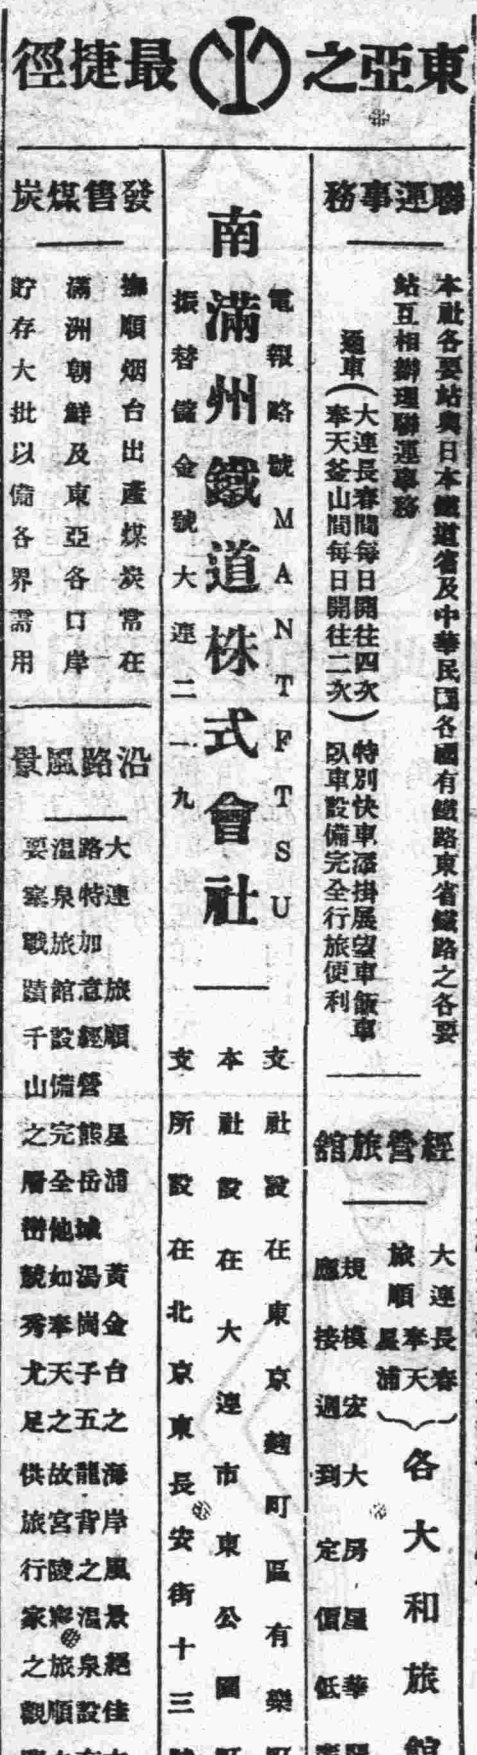 東亞之最捷徑
聯運事務
本社各要站與日本鐵道省及中華民國各國有鐵路東省鐵路之各要
站互相辦理聯運事務
通車(大連長春間每日開往四次
奉天釜山間每日開往二次)
特別快車添掛展望車飯車
臥車設備完全行旅便利
經營旅館
大連 長春
旅順 奉天
星浦
各大和旅館
規模宏大房屋華
應接週到定價低
電報略號MANTETSU
南滿州鐵道株式會社
振替儲金號大連二一九
支社設在東京麴町區有樂町
本社設在大連市東公園町
支所設在北京東長安街十三號
發售煤炭
撫順烟台出產煤炭常在
滿洲朝鮮及東亞各口岸
貯存大批以備各界需用
沿路風景
大連 旅順 星浦 黃金台之海岸風景絕佳
路特加意經營熊岳城湯崗子五龍背之溫泉設
溫泉旅館設備完全他如奉天之故宮陵寢旅順
要塞戰蹟千山之層巒競秀尤足供旅行家之觀